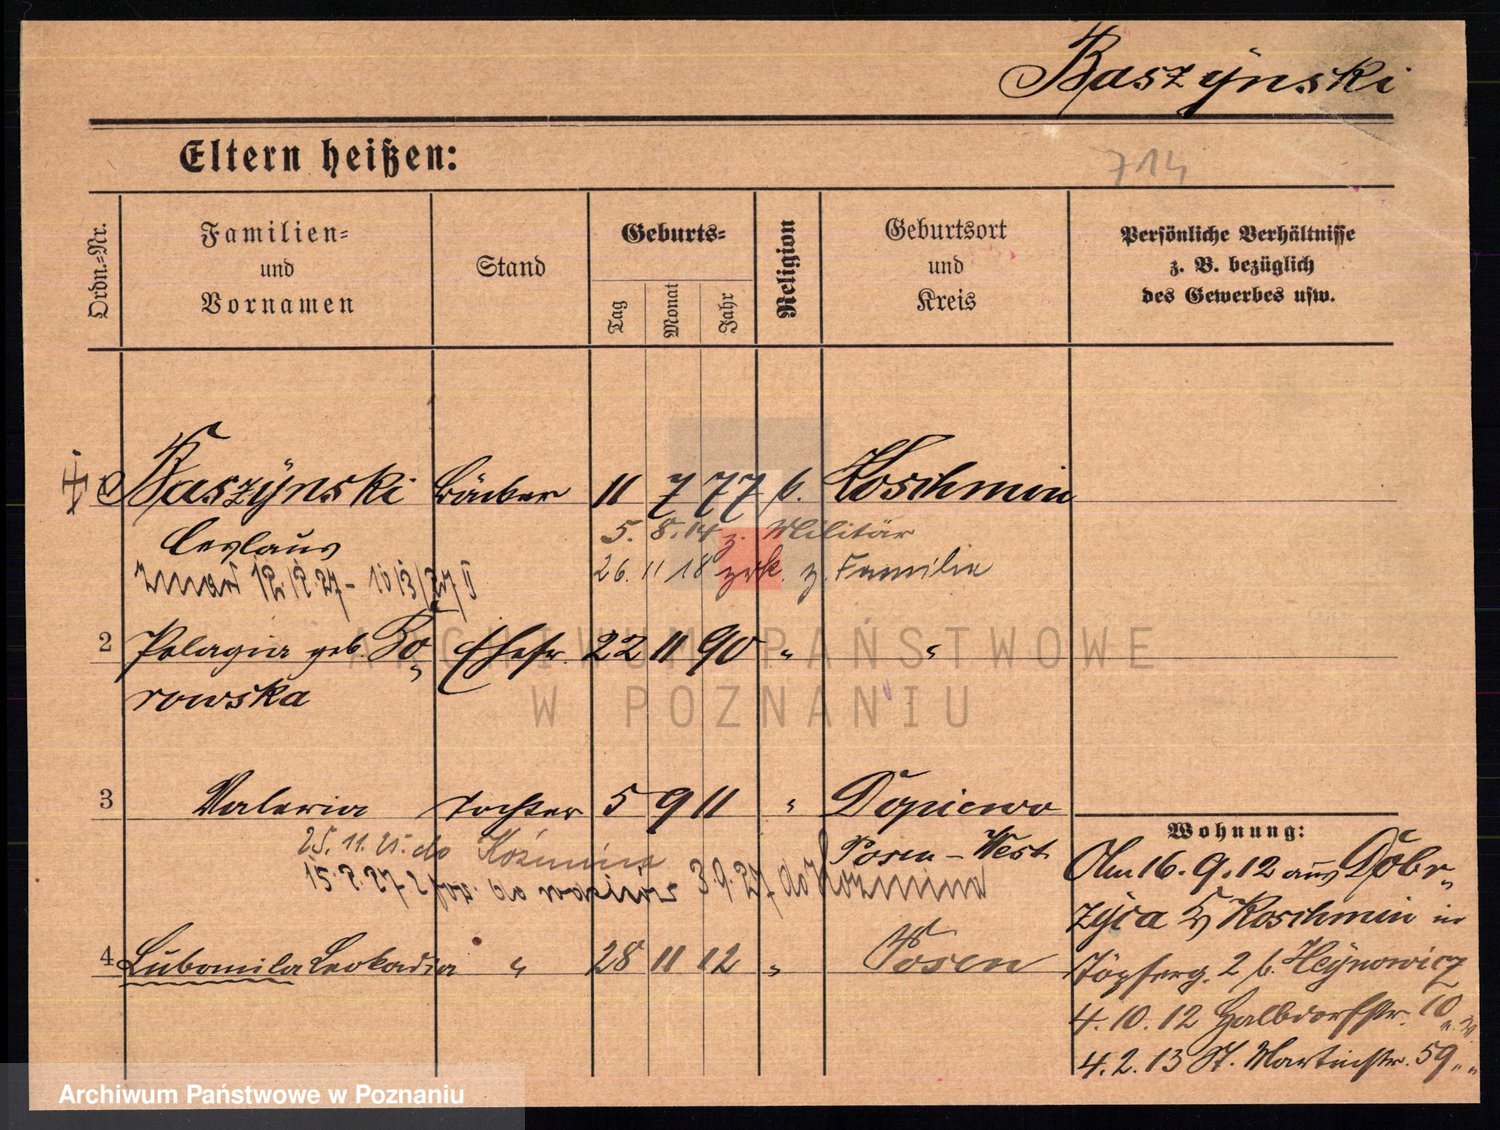 Baszynski
Eltern heißen:
714
Ordn.=Nr.
Familien=
und
Vornamen
Stand
Geburts=
Tag
Monat
Jahr
Religion
Geburtsort
und
Kreis
Persönliche Verhältnisse
z. B. bezüglich
des Gewerbes usw.
Baszynski Bäcker 11 7 77 k. Koschmin
Ceslaus
5. 8. 14 z. Militär
26. 11 18 zrk. z. Familie
2 Pelagia geb. Bo- Ehefr. 22 11 90 " "
rowska
3 Valeria Tochter 5 9 11 " Dopiewo
Posen - West
25. 11. 25. do Koźmina
3.9.27 do Kozmina
4 Lubomila Leokadia " 28 11 12 " Posen
Wohnung:
Am 16. 9. 12 aus Dobr-
zyca Kr Koschmin in
Töpferg. 2 b. Heynowicz
4. 10. 12 Halbdorfstr. 10
4. 2. 13 St. Martinstr. 59 " "
ARCHIWUM PAŃSTWOWE
W POZNANIU
Archiwum Państwowe w Poznaniu